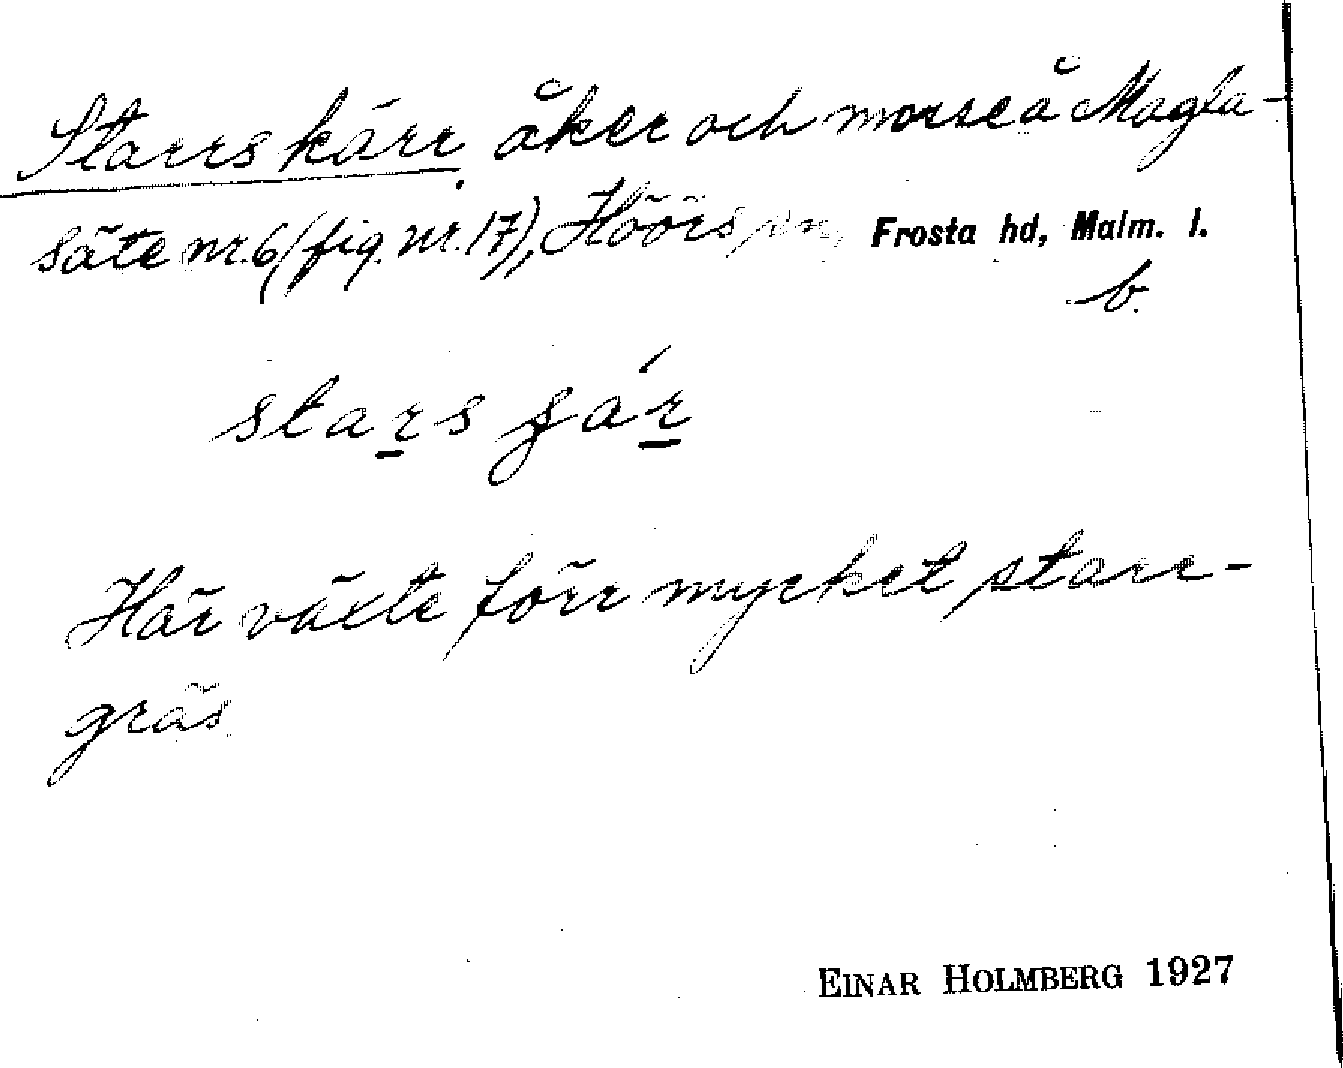 Starrskärr, åker och mosse å Magla-
säte nr. 6 (fig. nr. 17), Höörs sn, Frosta hd, Malm. l.
b.
stars kár
Här växte förr mycket starr-
gräs.
EINAR HOLMBERG 1927